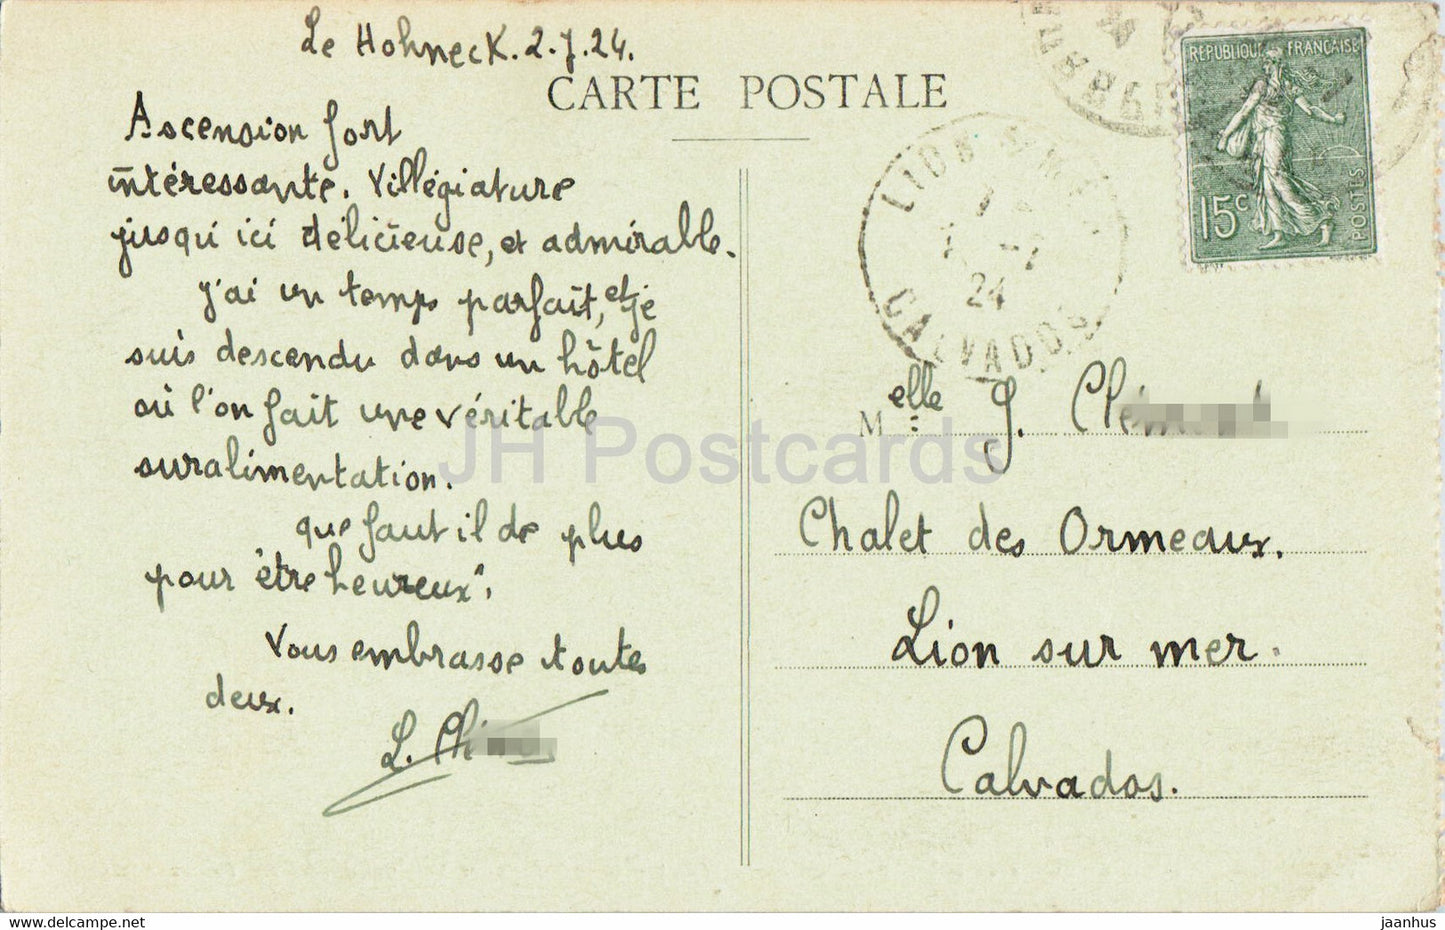 Le Hohneck. 2.7.24.
CARTE POSTALE
Ascension fort
intéressante. Villégiature
jusqu'ici délicieuse, et admirable.
J'ai un temps parfait, et je
suis descendu dans un hôtel
où l'on fait une véritable
suralimentation.
que faut il de plus
pour "être heureux".
Vous embrasse toutes
deux.
L.
REPUBLIQUE FRANÇAISE
15c
POSTES
CALVADOS
24
Melle J.
Chalet des Ormeaux.
Lion sur mer.
Calvados.
JH Postcards
www.hippostcard.com
jaanhus